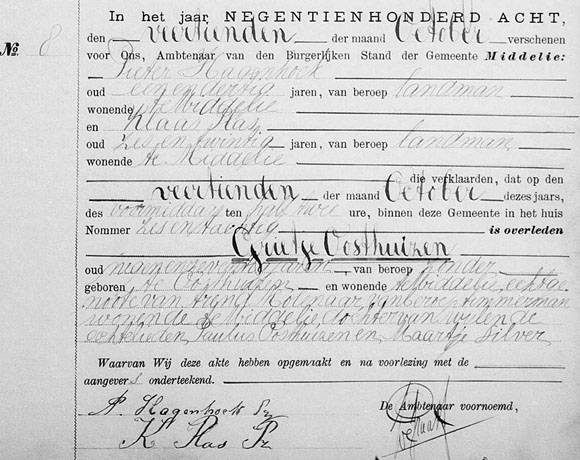 In het jaar NEGENTIENHONDERD ACHT,
den veertienden der maand October verschenen
No. 8 voor Ons, Ambtenaar van den Burgerlijken Stand der Gemeente Middelie:
Pieter Hagenhoek
oud eenendertig jaren, van beroep landman
wonende te Middelie
en Klaas Has
oud zesentwintig jaren, van beroep landman
wonende te Middelie
die verklaarden, dat op den
veertienden der maand October dezes jaars,
des voormiddags ten half twee ure, binnen deze Gemeente in het huis
Nommer zesentachtig is overleden
Grietje Oosthuizen
oud jaren, van beroep zonder
geboren te Oosthuizen en wonende te Middelie, echtge
noote van Arend Molenaar, van beroep timmerman
wonende te Middelie, dochter van wijlen de
echtelieden Paulus Oosthuizen en Maartje Silver
Waarvan Wij deze akte hebben opgemaakt en na voorlezing met de
aangevers onderteekend.
P. Hagenhoek Pz De Ambtenaar voornoemd,
K Has Pz